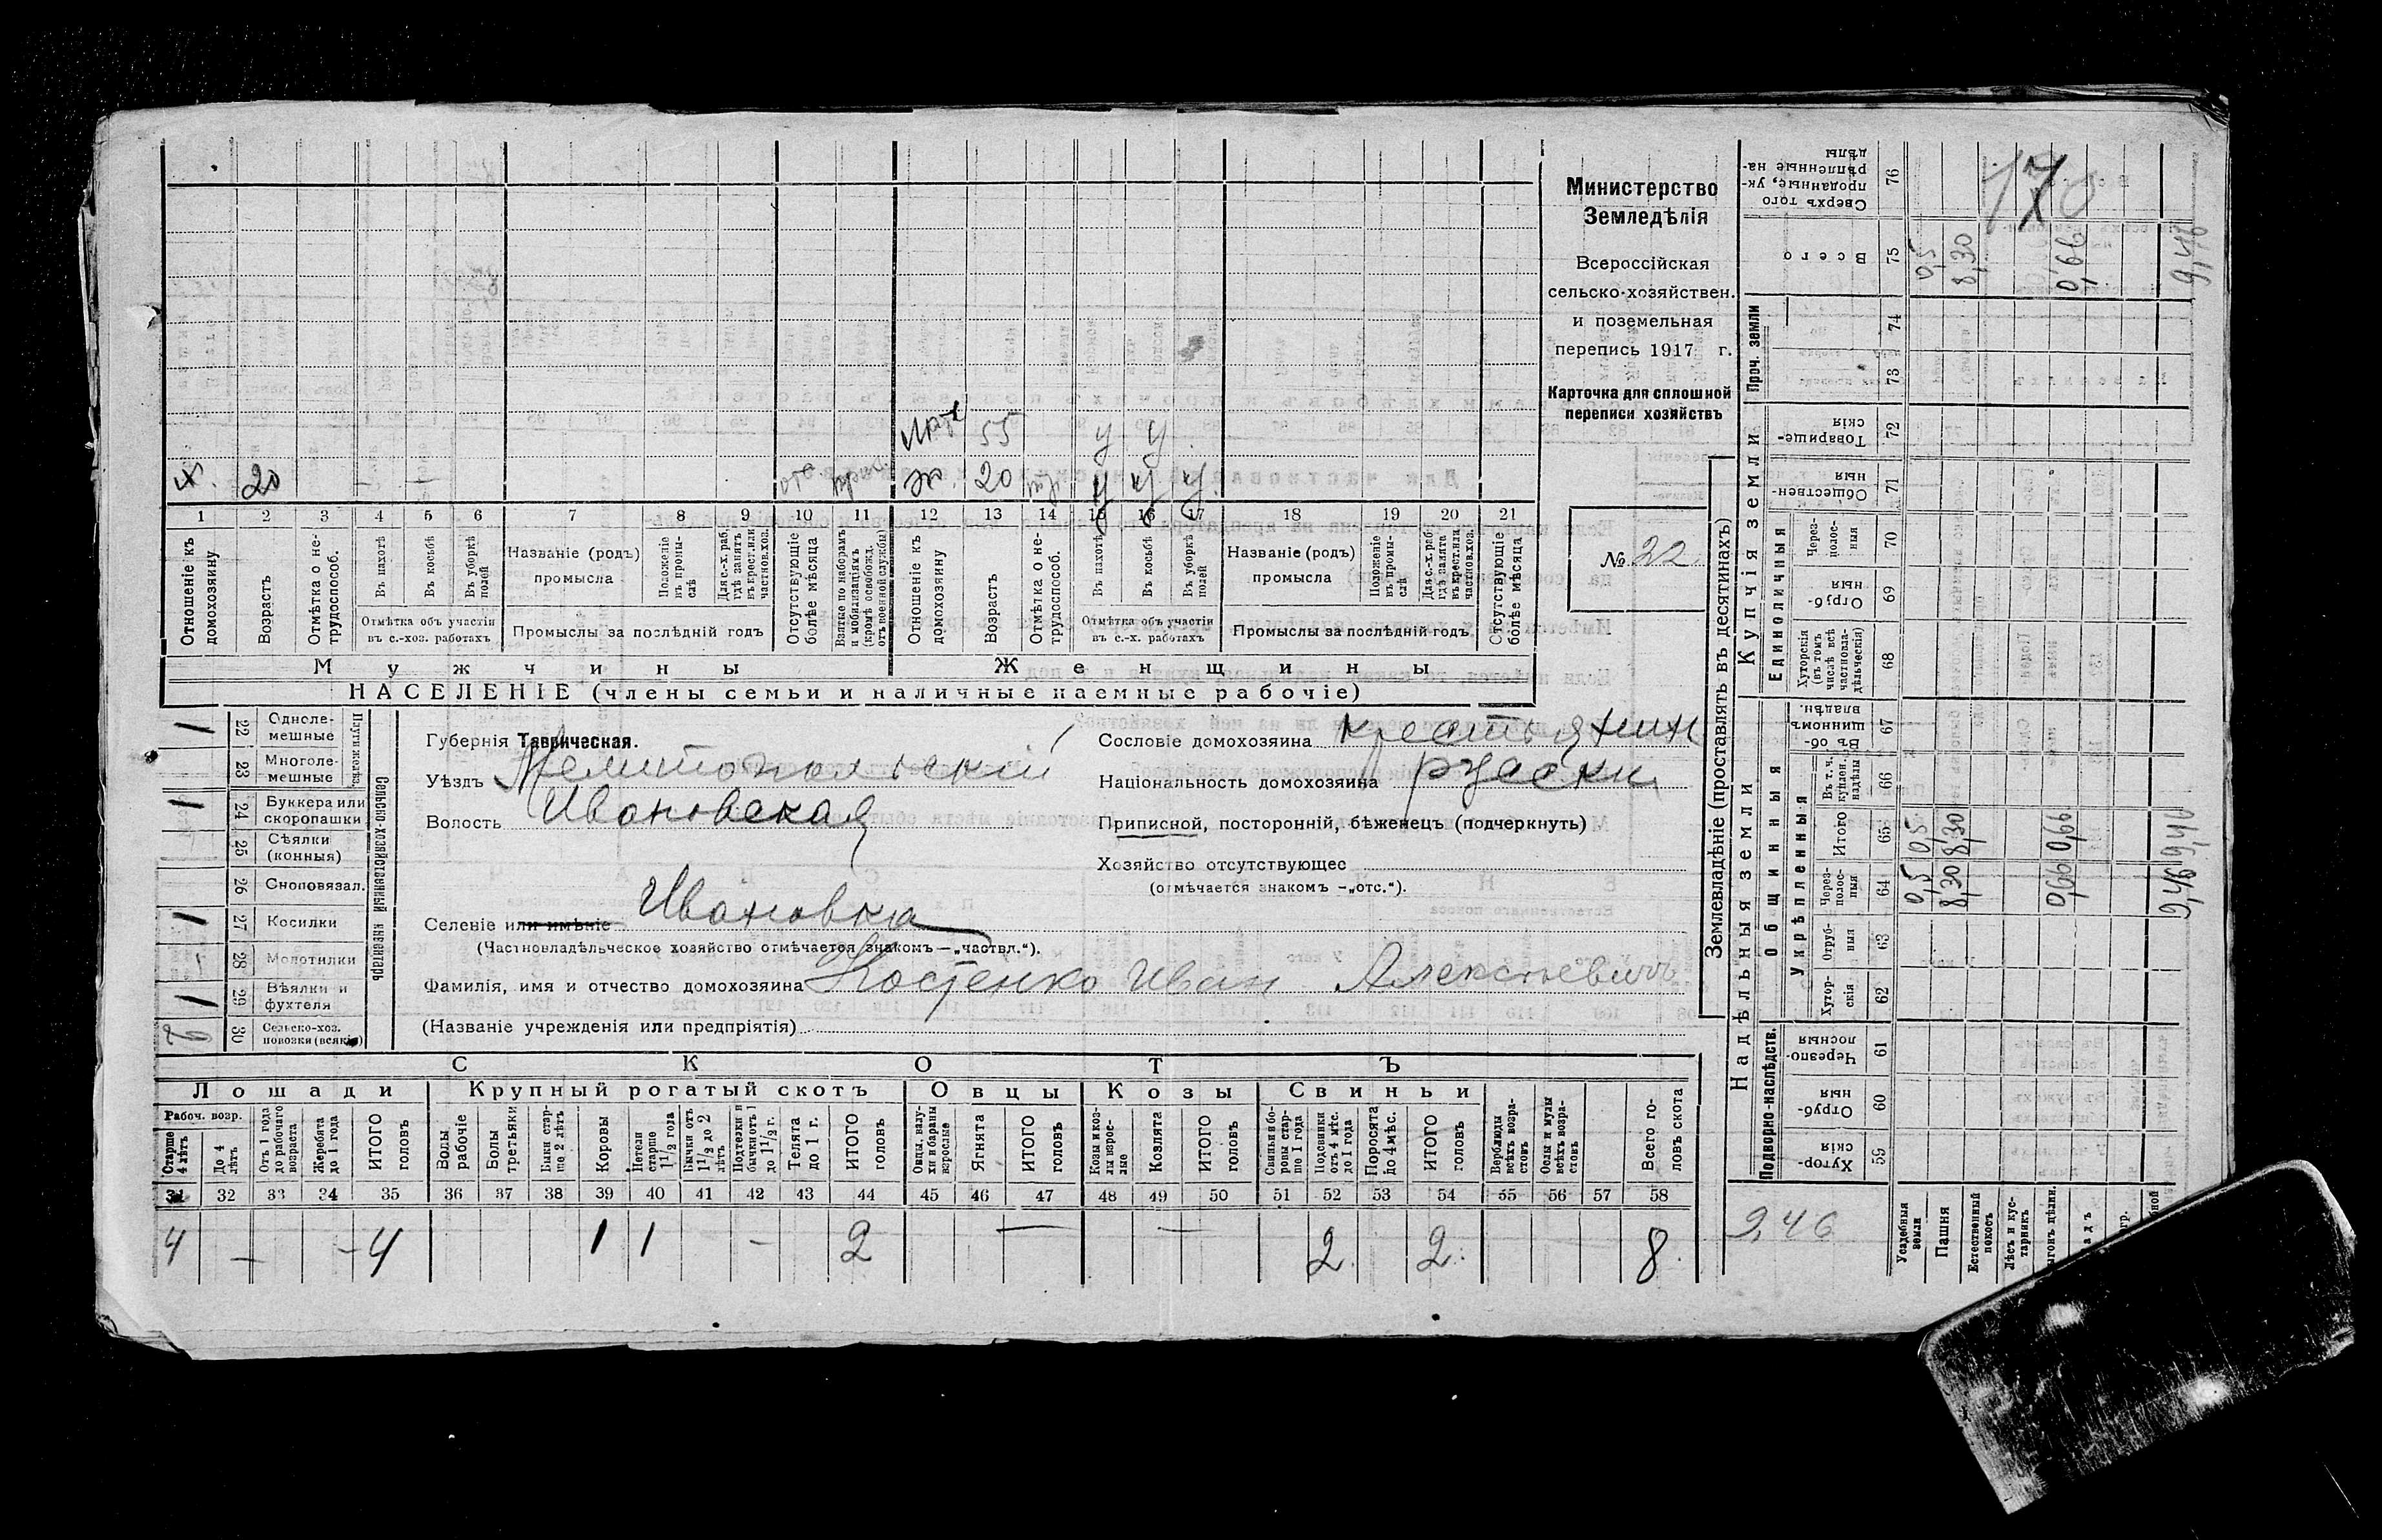 Министерство
Земледѣлія
Всероссійская
сельско-хозяйствен.
и поземельная
перепись 1917 г.
Карточка для сплошной
переписи хозяйствъ
№ 22.
55 у у
х. 20 отс. Ж. 20 у у у
1 2 3 4 5 6 7 8 9 10 11 12 13 14 15 16 17 18 19 20 21
Отношеніе къ домохозяину
Возрастъ
Отмѣтка о нетрудоспособ.
Въ пахотѣ
Въ косьбѣ
Въ уборкѣ полей
Отмѣтка объ участіи въ с.-хоз. работахъ
Названіе (родъ) промысла
Положеніе въ промыслѣ
Для с.-х. раб. гдѣ занятъ въ крест. или частнов. хоз.
Промыслы за послѣдній годъ
Отсутствующіе болѣе мѣсяца
Взятые по наборамъ и мобилизаціямъ (кромѣ освобожд. отъ военной службы)
Отношеніе къ домохозяину
Возрастъ
Отмѣтка о нетрудоспособ.
Въ пахотѣ
Въ косьбѣ
Въ уборкѣ полей
Отмѣтка объ участіи въ с.-х. работахъ
Названіе (родъ) промысла
Положеніе въ промыслѣ
Для с.-х. раб. гдѣ занята въ крест. или частнов. хоз.
Промыслы за послѣдній годъ
Отсутствующіе болѣе мѣсяца
Мужчины Женщины
НАСЕЛЕНІЕ (члены семьи и наличные наемные рабочіе)
Сельско-хозяйственный инвентарь
1 22 Однолемешные
23 Многолемешные
1 24 Буккера или скоропашки
25 Сѣялки (конныя)
26 Сноповязал.
1 27 Косилки
28 Молотилки
1 29 Вѣялки и фухтеля
2 30 Сельско-хоз. повозки (всякія)
Губернія Таврическая.
Уѣздъ Мелитопольскій
Волость Ивановская
Селеніе или имѣніе Ивановка
(Частновладѣльческое хозяйство отмѣчается знакомъ — „частвл.“).
Фамилія, имя и отчество домохозяина Костенко Иван Алексѣевичъ
(Названіе учрежденія или предпріятія)
Сословіе домохозяина крестьянин
Національность домохозяина русски
Приписной, посторонній, бѣженецъ (подчеркнуть)
Хозяйство отсутствующее
(отмѣчается знакомъ —„отс.“).
СКОТЪ
Лошади Крупный рогатый скотъ Овцы Козы Свиньи
Рабоч. возр.
Старше 4 лѣтъ
До 4 лѣтъ
Отъ 1 года до рабочаго возраста
Жеребята до 1 года
ИТОГО головъ
Волы рабочіе
Волы третьяки
Быки старше 2 лѣтъ
Коровы
Нетели старше 1½ года
Бычки отъ 1½ до 2 лѣтъ
Подтелки и бычки отъ 1 до 1½ г.
Телята до 1 г.
ИТОГО головъ
Овцы, валухи и бараны взрослые
Ягнята
ИТОГО головъ
Козы и козлы взрослые
Козлята
ИТОГО головъ
Свиньи и боровы старше 1 года
Подсвинки отъ 4 мѣс. до 1 года
Поросята до 4 мѣс.
ИТОГО головъ
Верблюды всѣхъ возрастовъ
Ослы и мулы всѣхъ возрастовъ
Всего головъ скота
31 32 33 34 35 36 37 38 39 40 41 42 43 44 45 46 47 48 49 50 51 52 53 54 55 56 57 58
4 — - 4 1 1 - 2 — — 2 2 8
Землевладѣніе (проставлять въ десятинахъ)
Надѣльныя земли Купчія земли Проч. земли
Подворно-наслѣдств. Общинныя Единоличныя
Укрѣпленныя
Хуторскія 59
Отрубныя 60
Черезполосныя 61
Хуторскія 62
Отрубныя 63
Черезполосныя 64 0,5 8,30 0,66 9,46
Итого 65 0,5 8,30 0,66 9,46
Въ т. ч. куплен. надѣлы 66
Въ общинномъ владѣн. 67
Хуторскія (въ томъ числѣ всѣ частновладѣльческія) 68
Отрубныя 69
Черезполосныя 70
Общественныя 71
Товарищескія 72
73
74
Всего 75 0,5 8,30 0,66 9,46
Сверхъ того проданные, укрѣпленные надѣлы 76
Усадебныя земли
Пашня
Естественный покосъ
Лѣсъ и кустарникъ
9,46